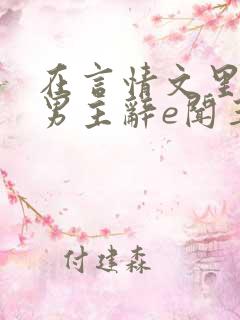 在言情文里
男主辭e聞
付建森